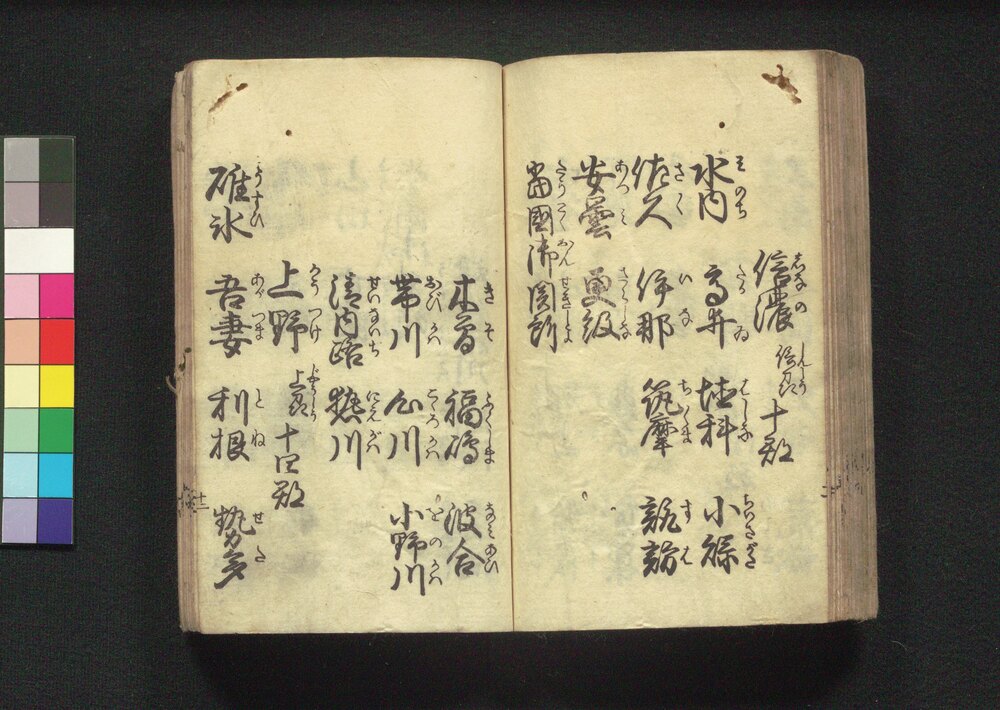 信濃 信州 十郡
しなの しんしう
水内 高井 埴科 小縣
みのち たかゐ はしな ちいさがた
佐久 伊那 筑摩 諏訪
さく いな ちくま すは
安曇 更級
あつみ さらしな
當國御関所
たうこくおんせきしよ
木曽 福嶋 波合
きそ ふくしま なみあひ
帯川 心川 小野川
おびかは こゝろかは をのかは
清内路 熱川
せいないぢ にえがは
上野 上州 十四郡
かうつけ じやうしう
碓氷 吾妻 利根 勢多
うすひ あがつま とね せた
十二